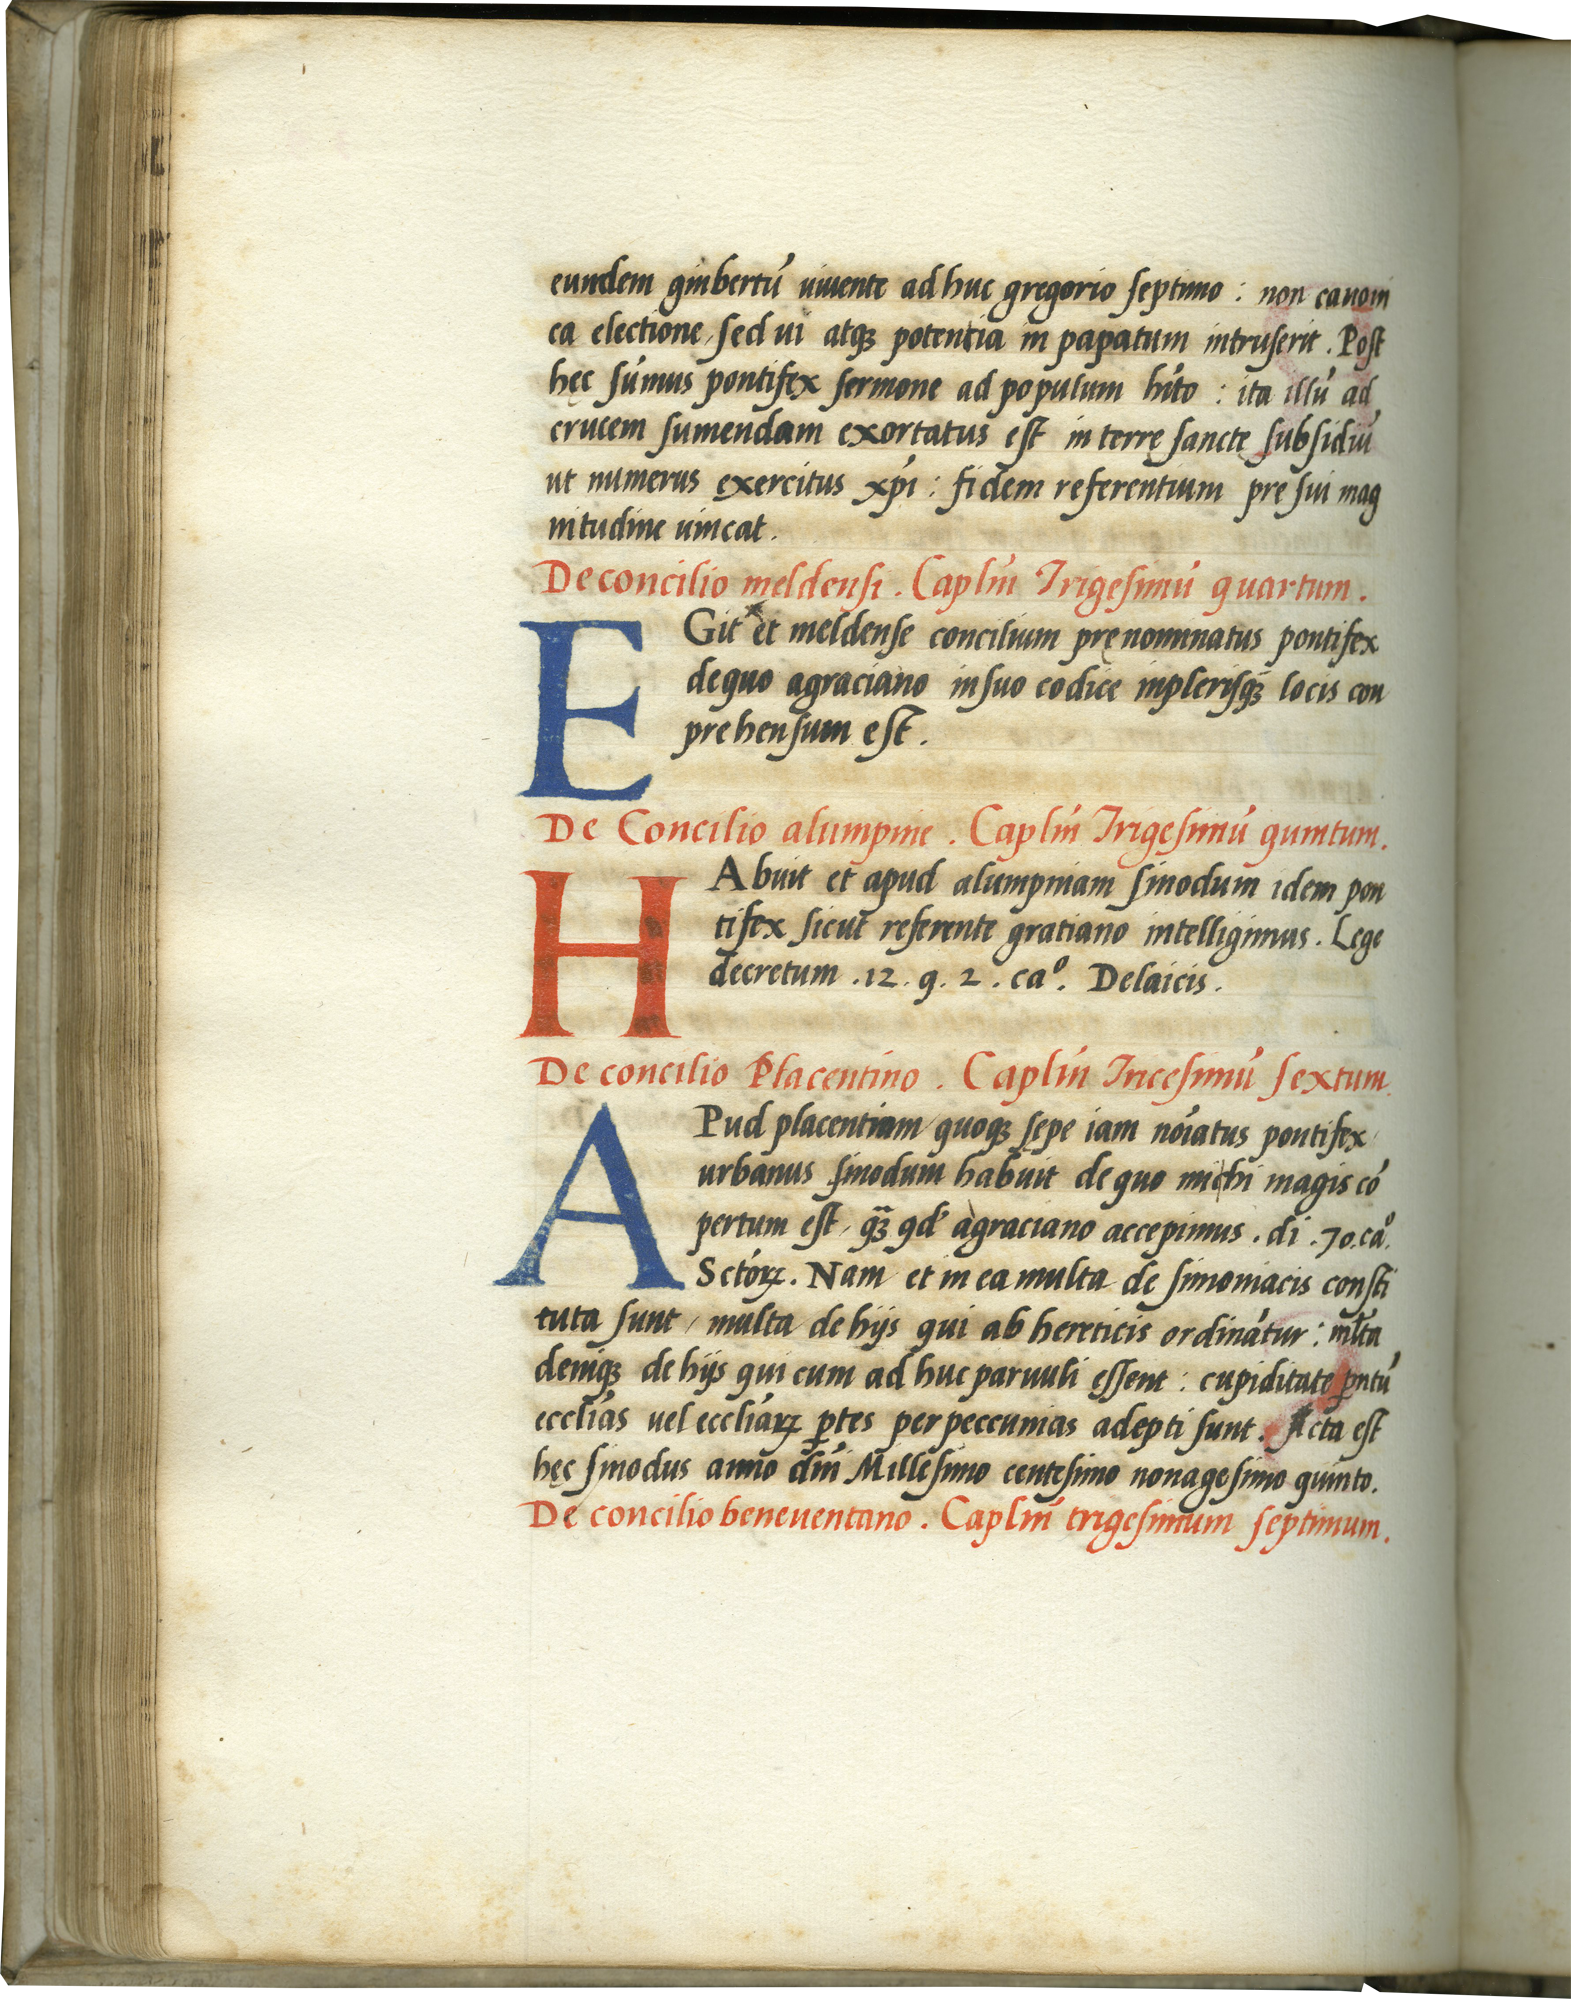 eundem ginbertū uiuente adhuc gregorio septimo : non canoni
ca electione, sed ui atqꝫ potentia in papatum intruserit . Post
hęc sūmus pontifex sermone ad populum hīto : ita illū ad
crucem sumendam exortatus est in terrę sanctę subsidiū
ut numerus exercitus xp̄i : fidem referentium pre sui mag
nitudine uincat .
De concilio meldensi . Caplūm Trigesimū quartum .
EGit et meldense concilium prenominatus pontifex
de quo a graciano in suo codice in plerisqꝫ locis con
prehensum est .
De Concilio alumpnie . Caplūm Trigesimū quintum .
HAbuit et apud alumpniam sinodum idem pon
tifex sicut referente gratiano intelligimus . Lege
decretum . 12 . q . 2 . caº . De laicis .
De concilio Placentino . Caplūm Tricesimū sextum .
APud placentiam, quoqꝫ sępe iam noīatus pontifex,
urbanus sinodum habuit de quo michi magis cō
pertum est, qꝫ qd̄ a graciano accepimus . di . 70 . caº .
Sctōrꝝ . Nam et in ea multa de simoniacis consti
tuta sunt, multa de hijs qui ab hereticis ordinātur : mlta
deniqꝫ de hijs qui cum adhuc paruuli essent : cupiditate pntū
ecclīas uel eccliārꝝ ꝑtes per peccunias adepti sunt . Acta est
hęc sinodus anno dn̄i Millesimo centesimo nonagesimo quinto .
De concilio beneuentano . Caplūm trigesimum septimum .